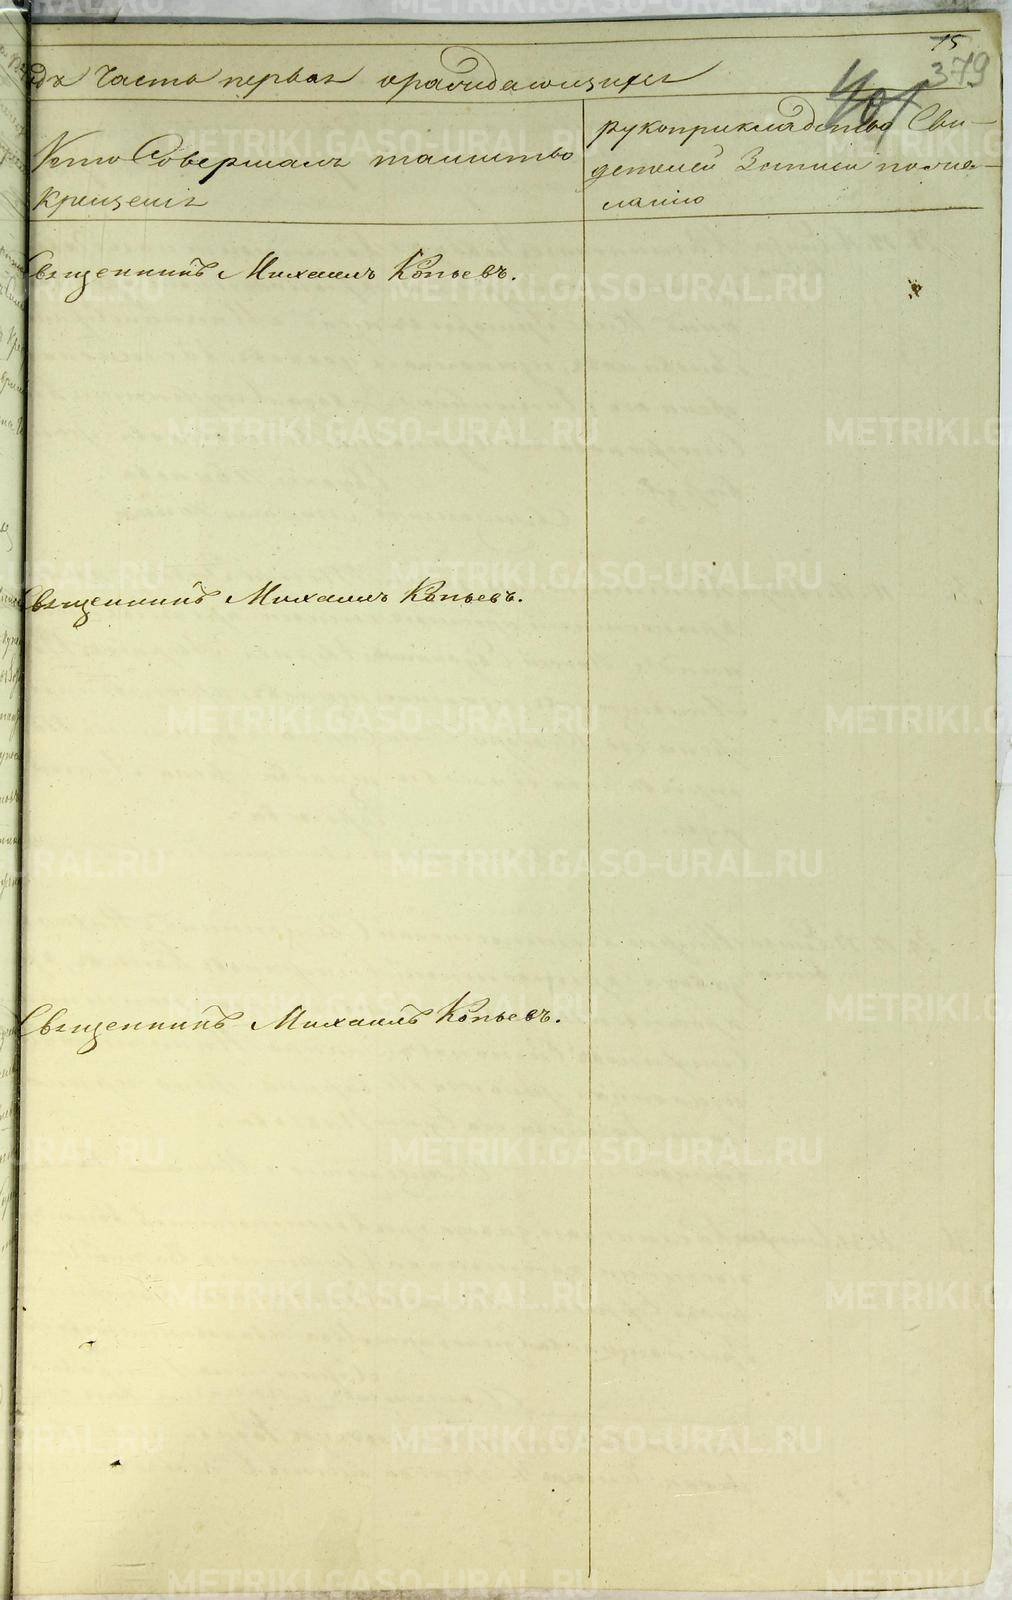 15
379
401
одъ Часть первая о раждающихся
Кто Совершалъ таинство
крещенія
рукоприкладство Сви-
детелей Записи по же-
ланію
Священникъ Михаилъ Копьевъ.
Священникъ Михаилъ Копьевъ.
Священникъ Михаилъ Копьевъ.
METRIKI.GASO-URAL.RU